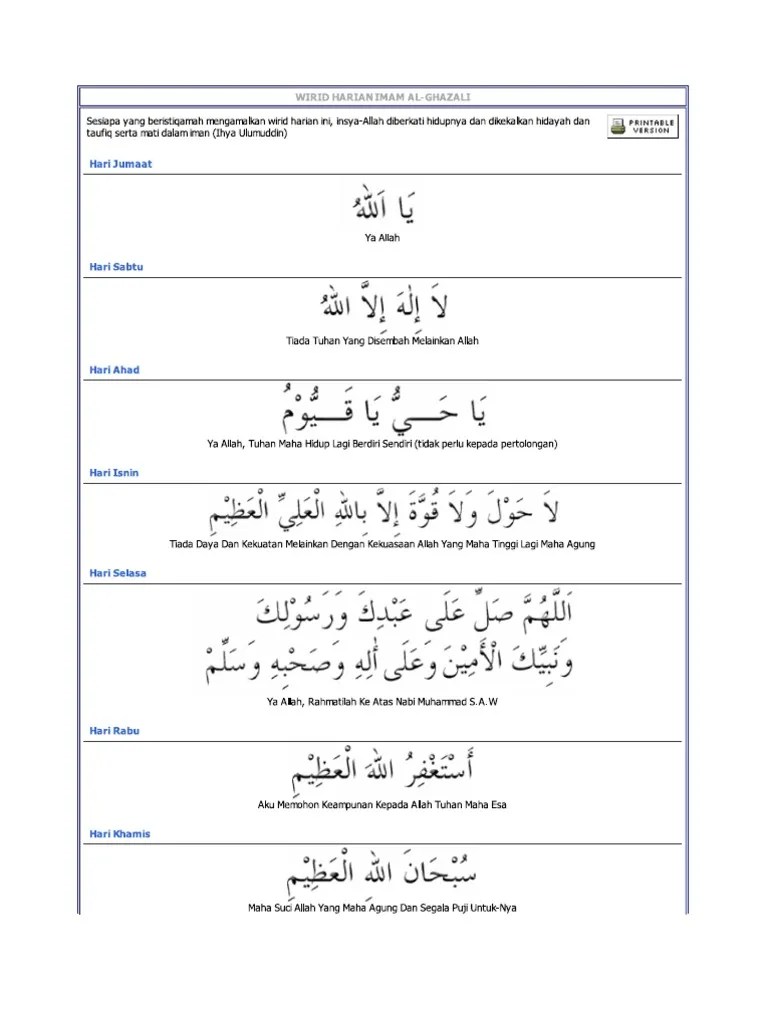 WIRID HARIAN IMAM AL-GHAZALI
Sesiapa yang beristiqamah mengamalkan wirid harian ini, insya-Allah diberkati hidupnya dan dikekalkan hidayah dan
taufiq serta mati dalam iman (Ihya Ulumuddin)
PRINTABLE
VERSION
Hari Jumaat
يَا اَللهُ
Ya Allah
Hari Sabtu
لاَ إِلٰهَ إِلاَّ اللهُ
Tiada Tuhan Yang Disembah Melainkan Allah
Hari Ahad
يَا حَـــيُّ يَا قَـــيُّوْمُ
Ya Allah, Tuhan Maha Hidup Lagi Berdiri Sendiri (tidak perlu kepada pertolongan)
Hari Isnin
لاَ حَوْلَ وَلاَ قُوَّةَ إِلاَّ بِاللهِ الْعَلِيِّ الْعَظِيْمِ
Tiada Daya Dan Kekuatan Melainkan Dengan Kekuasaan Allah Yang Maha Tinggi Lagi Maha Agung
Hari Selasa
اَللَّهُمَّ صَلِّ عَلَى عَبْدِكَ وَرَسُوْلِكَ
وَنَبِيِّكَ الْأَمِيْنَ وَعَلَى أٰلِهِ وَصَحْبِهِ وَسَلِّمْ
Ya Allah, Rahmatilah Ke Atas Nabi Muhammad S.A.W
Hari Rabu
أَسْتَغْفِرُ اللهَ الْعَظِيْمِ
Aku Memohon Keampunan Kepada Allah Tuhan Maha Esa
Hari Khamis
سُبْحَانَ اللهِ الْعَظِيْمِ
Maha Suci Allah Yang Maha Agung Dan Segala Puji Untuk-Nya